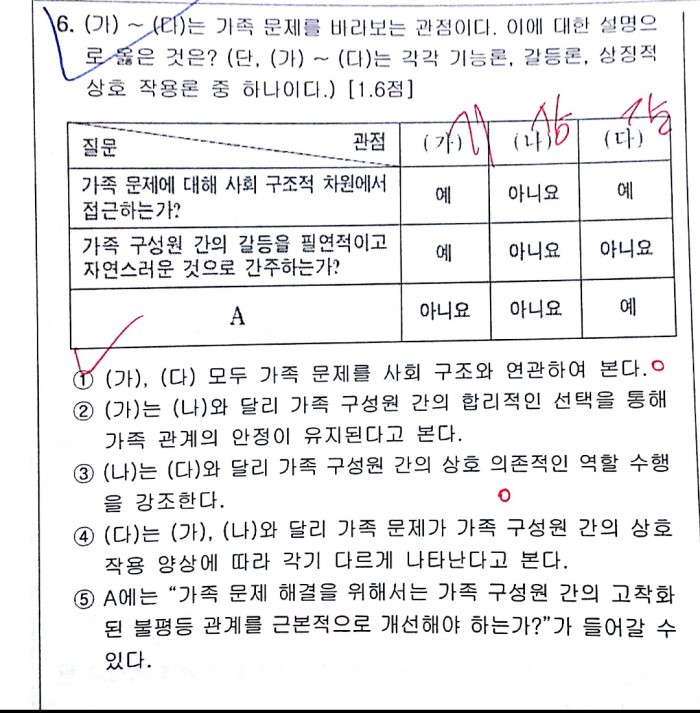 6. (가) ~ (다)는 가족 문제를 바라보는 관점이다. 이에 대한 설명으
로 옳은 것은? (단, (가) ~ (다)는 각각 기능론, 갈등론, 상징적
상호 작용론 중 하나이다.) [1.6점]
질문 관점 (가) (나) (다)
가족 문제에 대해 사회 구조적 차원에서
접근하는가? 예 아니요 예
가족 구성원 간의 갈등을 필연적이고
자연스러운 것으로 간주하는가? 예 아니요 아니요
A 아니요 아니요 예
① (가), (다) 모두 가족 문제를 사회 구조와 연관하여 본다.
② (가)는 (나)와 달리 가족 구성원 간의 합리적인 선택을 통해
가족 관계의 안정이 유지된다고 본다.
③ (나)는 (다)와 달리 가족 구성원 간의 상호 의존적인 역할 수행
을 강조한다.
④ (다)는 (가), (나)와 달리 가족 문제가 가족 구성원 간의 상호
작용 양상에 따라 각기 다르게 나타난다고 본다.
⑤ A에는 “가족 문제 해결을 위해서는 가족 구성원 간의 고착화
된 불평등 관계를 근본적으로 개선해야 하는가?”가 들어갈 수
있다.